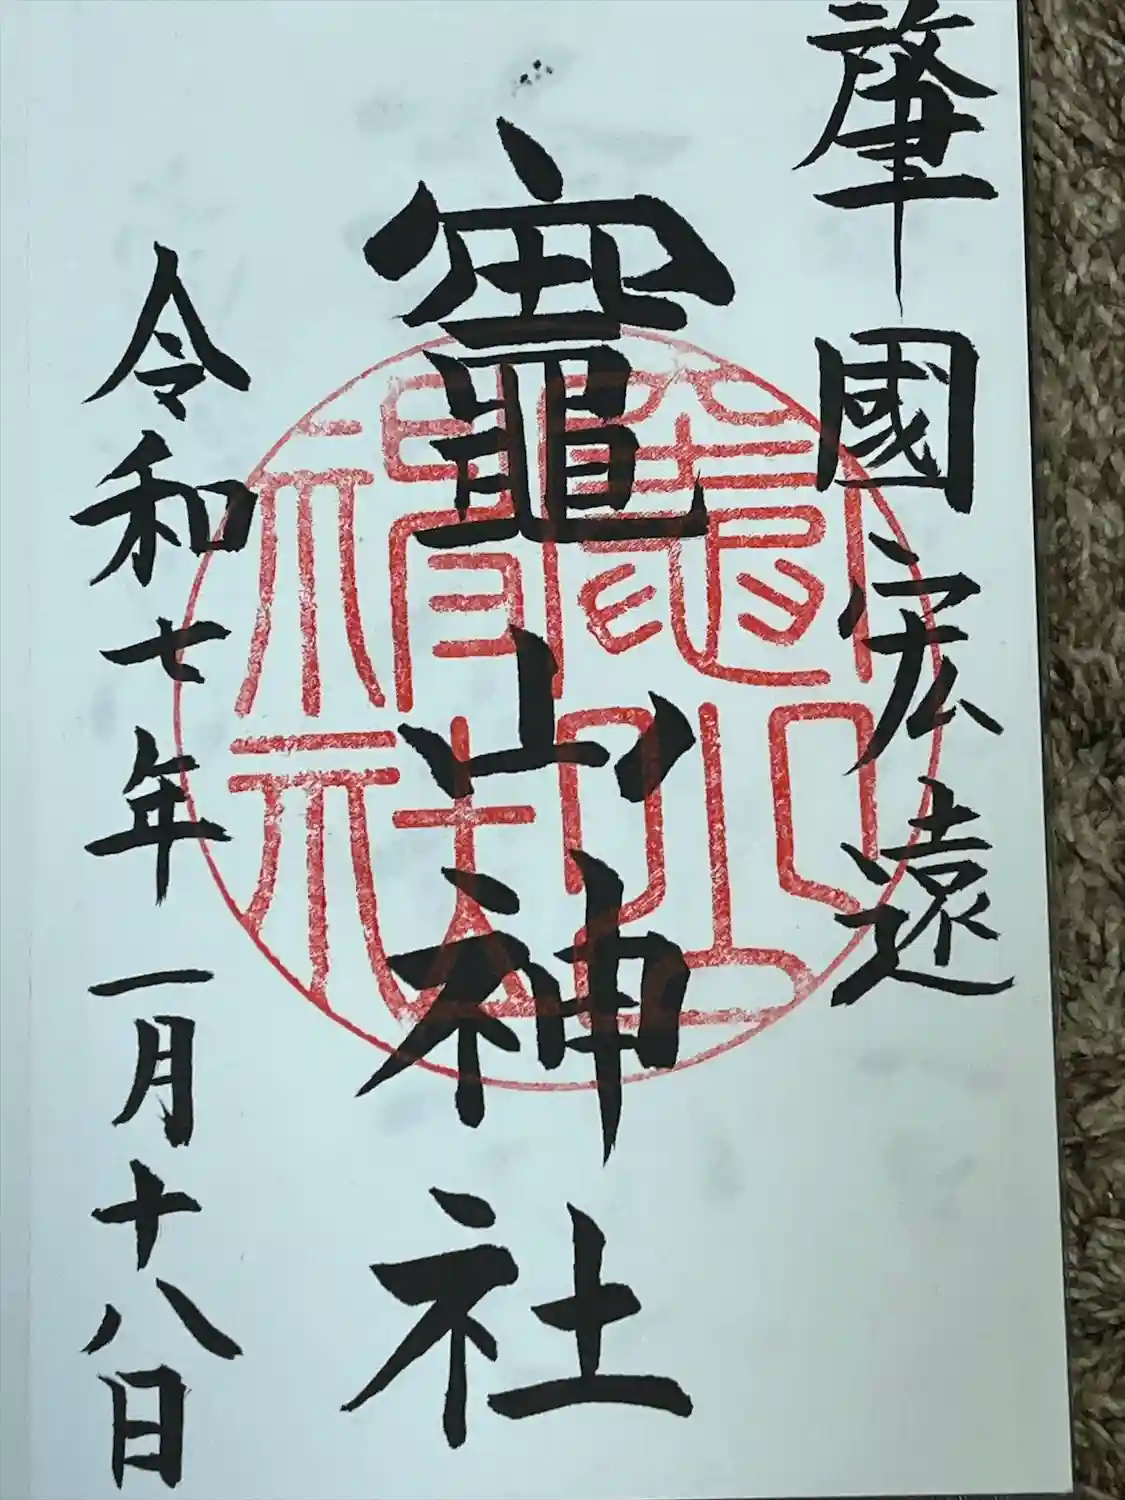 肇國宏遠
竈山神社
令和七年一月十八日
竈山神社